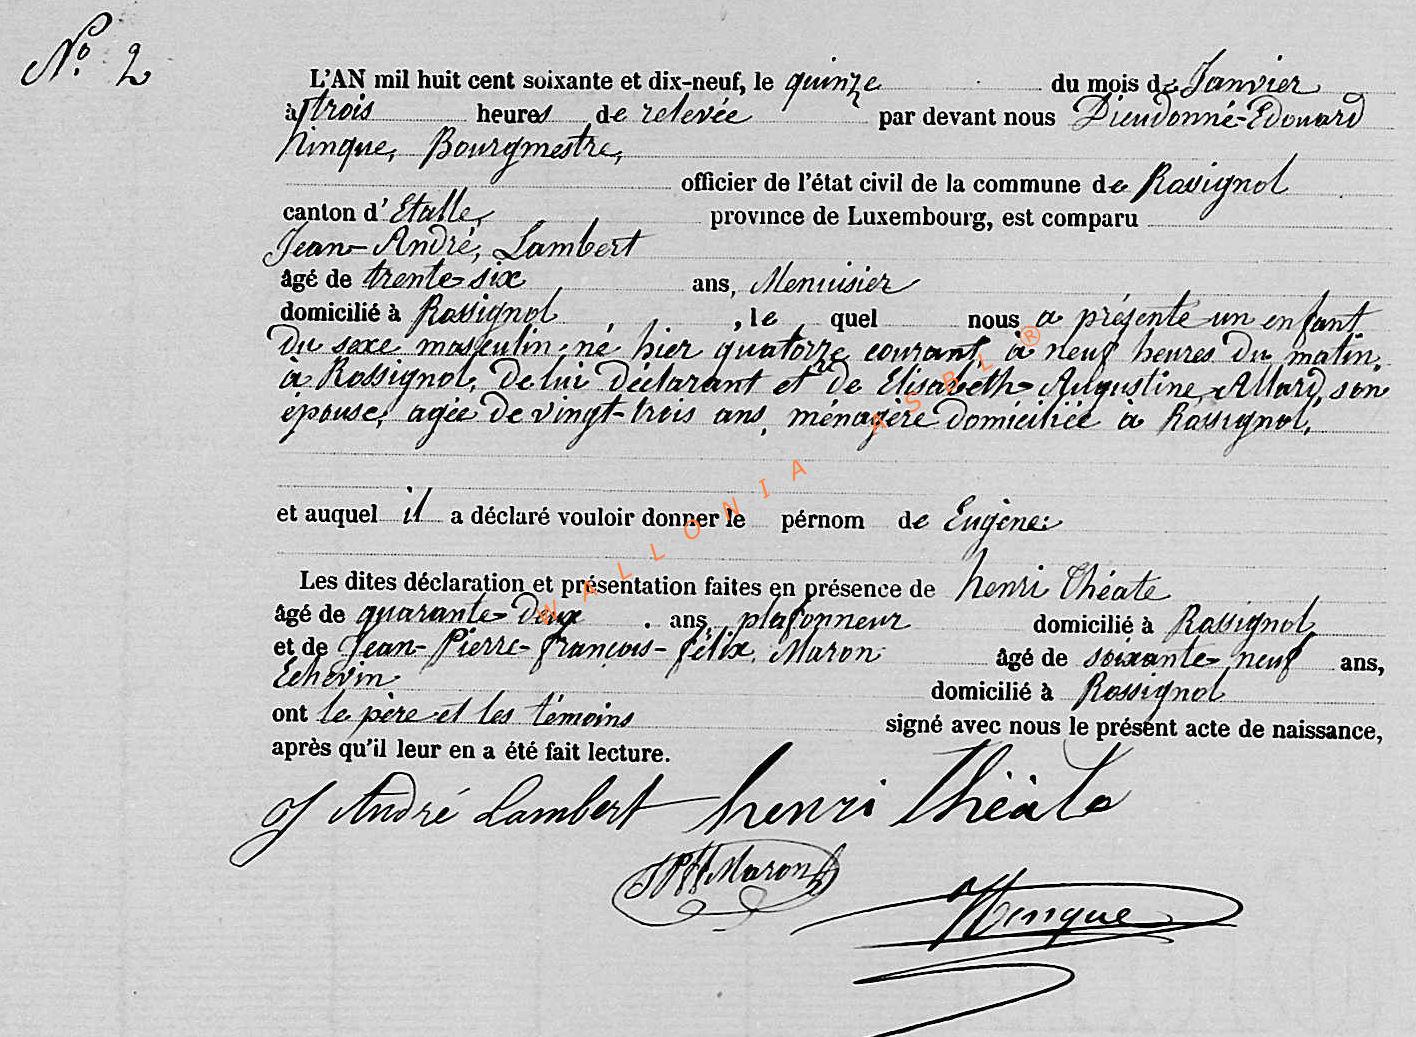 No. 2
L'AN mil huit cent soixante et dix-neuf, le quinze du mois de Janvier
à trois heures de relevée par devant nous Dieudonné-Edouard
hinque, Bourgmestre,
officier de l'état civil de la commune de Rossignol
canton d'Etalle, province de Luxembourg, est comparu
Jean-André, Lambert
âgé de trente-six ans, Menuisier
domicilié à Rossignol, le quel nous a présenté un enfant
du sexe masculin, né hier quatorze courant, à neuf heures du matin,
à Rossignol, de lui déclarant et de Elisabeth-Augustine, Allard, son
épouse, agée de vingt-trois ans, ménagère domiciliée à Rossignol,
et auquel il a déclaré vouloir donner le pérnom de Eugène:
Les dites déclaration et présentation faites en présence de henri Théate
âgé de quarante-deux ans, plafonneur domicilié à Rossignol
et de Jean-Pierre-françois-félix, Maron âgé de soixante-neuf ans,
Echevin domicilié à Rossignol
ont le père et les témoins signé avec nous le présent acte de naissance,
après qu'il leur en a été fait lecture.
J André Lambert henri Théate
Maron
Hinque
WALLONIA ASBL ®